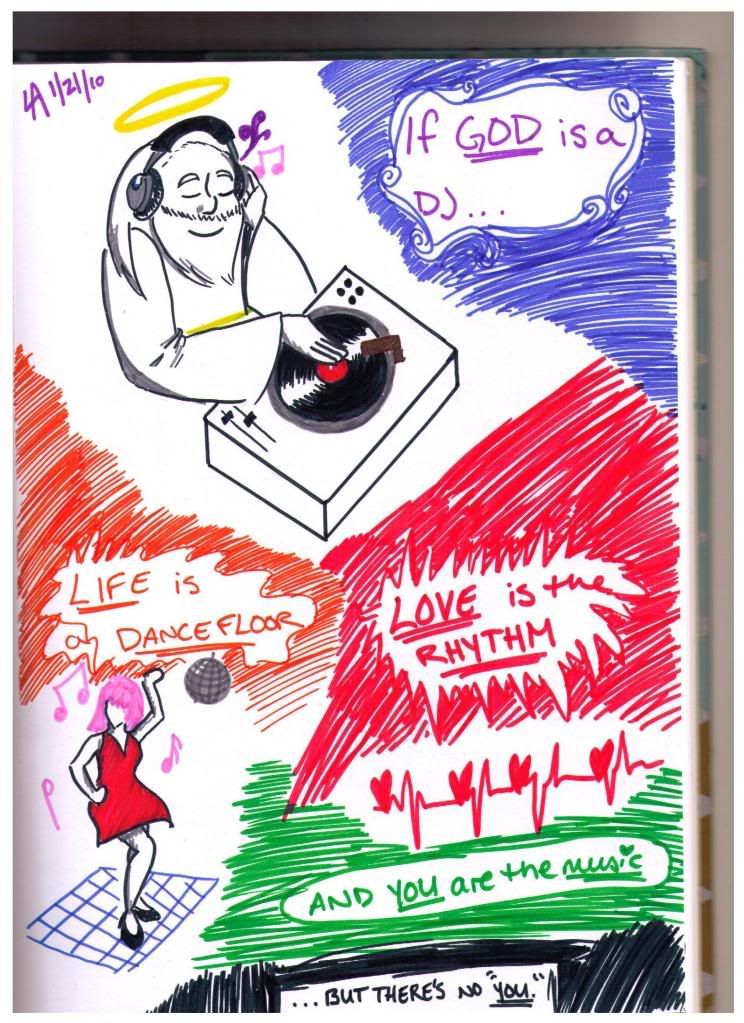 LA 1/21/10
If GOD is a
DJ...
LIFE is
a DANCEFLOOR
LOVE is the
RHYTHM
AND YOU are the music
...BUT THERE'S NO "YOU."